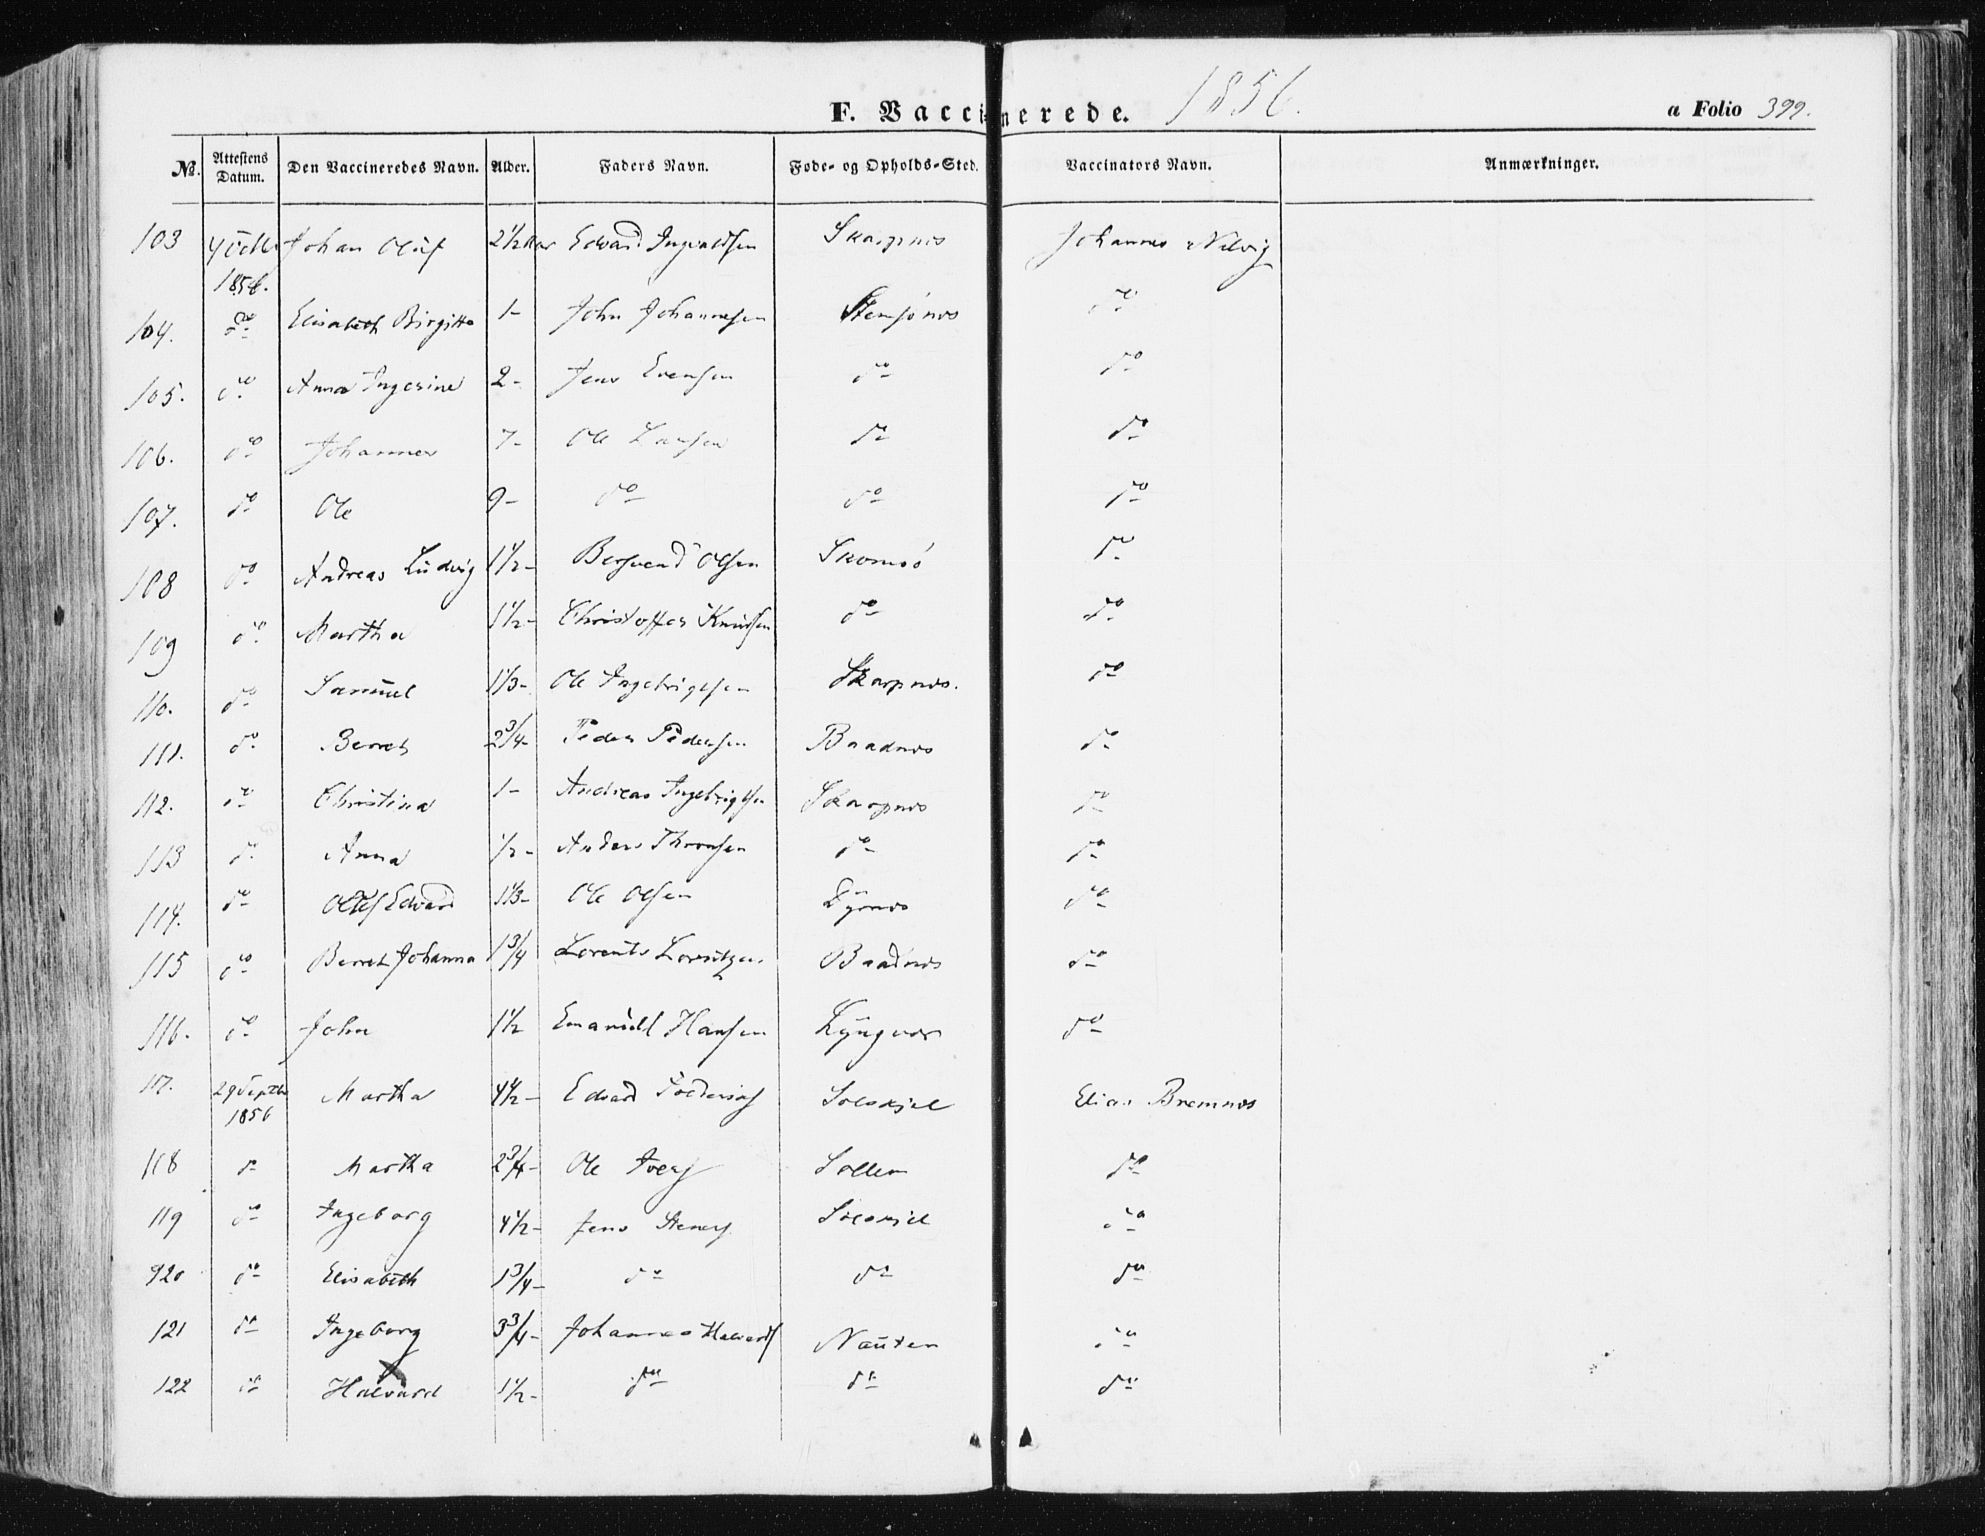 F. Vaccinerede. 1856.
a Folio 399.
No. Attestens Datum. Den Vaccineredes Navn. Alder. Faders Navn. Føde- og Opholds-Sted. Vaccinators Navn. Anmærkninger.
103 4 Octbr 1856. Johan Oluf 2 1/2 Aar Edvard Ingvaldsen Skarpnes Johannes
104. do Elisabeth Birgitte 1- John Johannesen do
105. do Anna Ingerine 2- Jens Evensen do do
106. do Johannes 7- Ole Larsen do do
107. do Ole 9- do do do
108 do Andreas Ludvig 1 1/2- Bersvend Olsen do
109 do Martha 1 1/2- Christoffer Knudsen do do
110. do Samuel 1 1/3- Ole Ingebrigtsen Skarpnes. do
111. do Berret 2 3/4- Peder Pedersen Baadnes do
112. do Christina 1- Andreas Ingebrigtsen Skarpnes do
113 do Anna 1/2- Anders Thronsen do do
114. do Edvard 1 1/3- Ole Olsen do
115 do Berret Johanna 1 3/4 Lorents Lorentzen Baadnes do
116. do John 1 1/2 Emanuel Hansen Lyngvær do
117. 29 Septbr 1856 Martha 4 1/2- Edvard Solskjel Elias Bremnes
118 do Martha 2 3/4- Ole Ivers Sollien do
119 do Ingeborg 4 1/2- Jens Steners Solskjel do
920 do Elisabeth 1 3/4- do do do
121 do Ingeborg 3 3/4- Johannes Halvards Nauten do
122 do Halvard 1 1/2- do do do